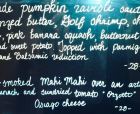 made pumpkin ravioli saute
nged butter, Gulf shrimp,
, pink banana squash, butternut
and sweet potato Topped with parmigi
and Balsamic reduction
-28
smoked Mahi Mahi over an arti
and sundried tomato "Orzotto"
Asiago cheese
-28-